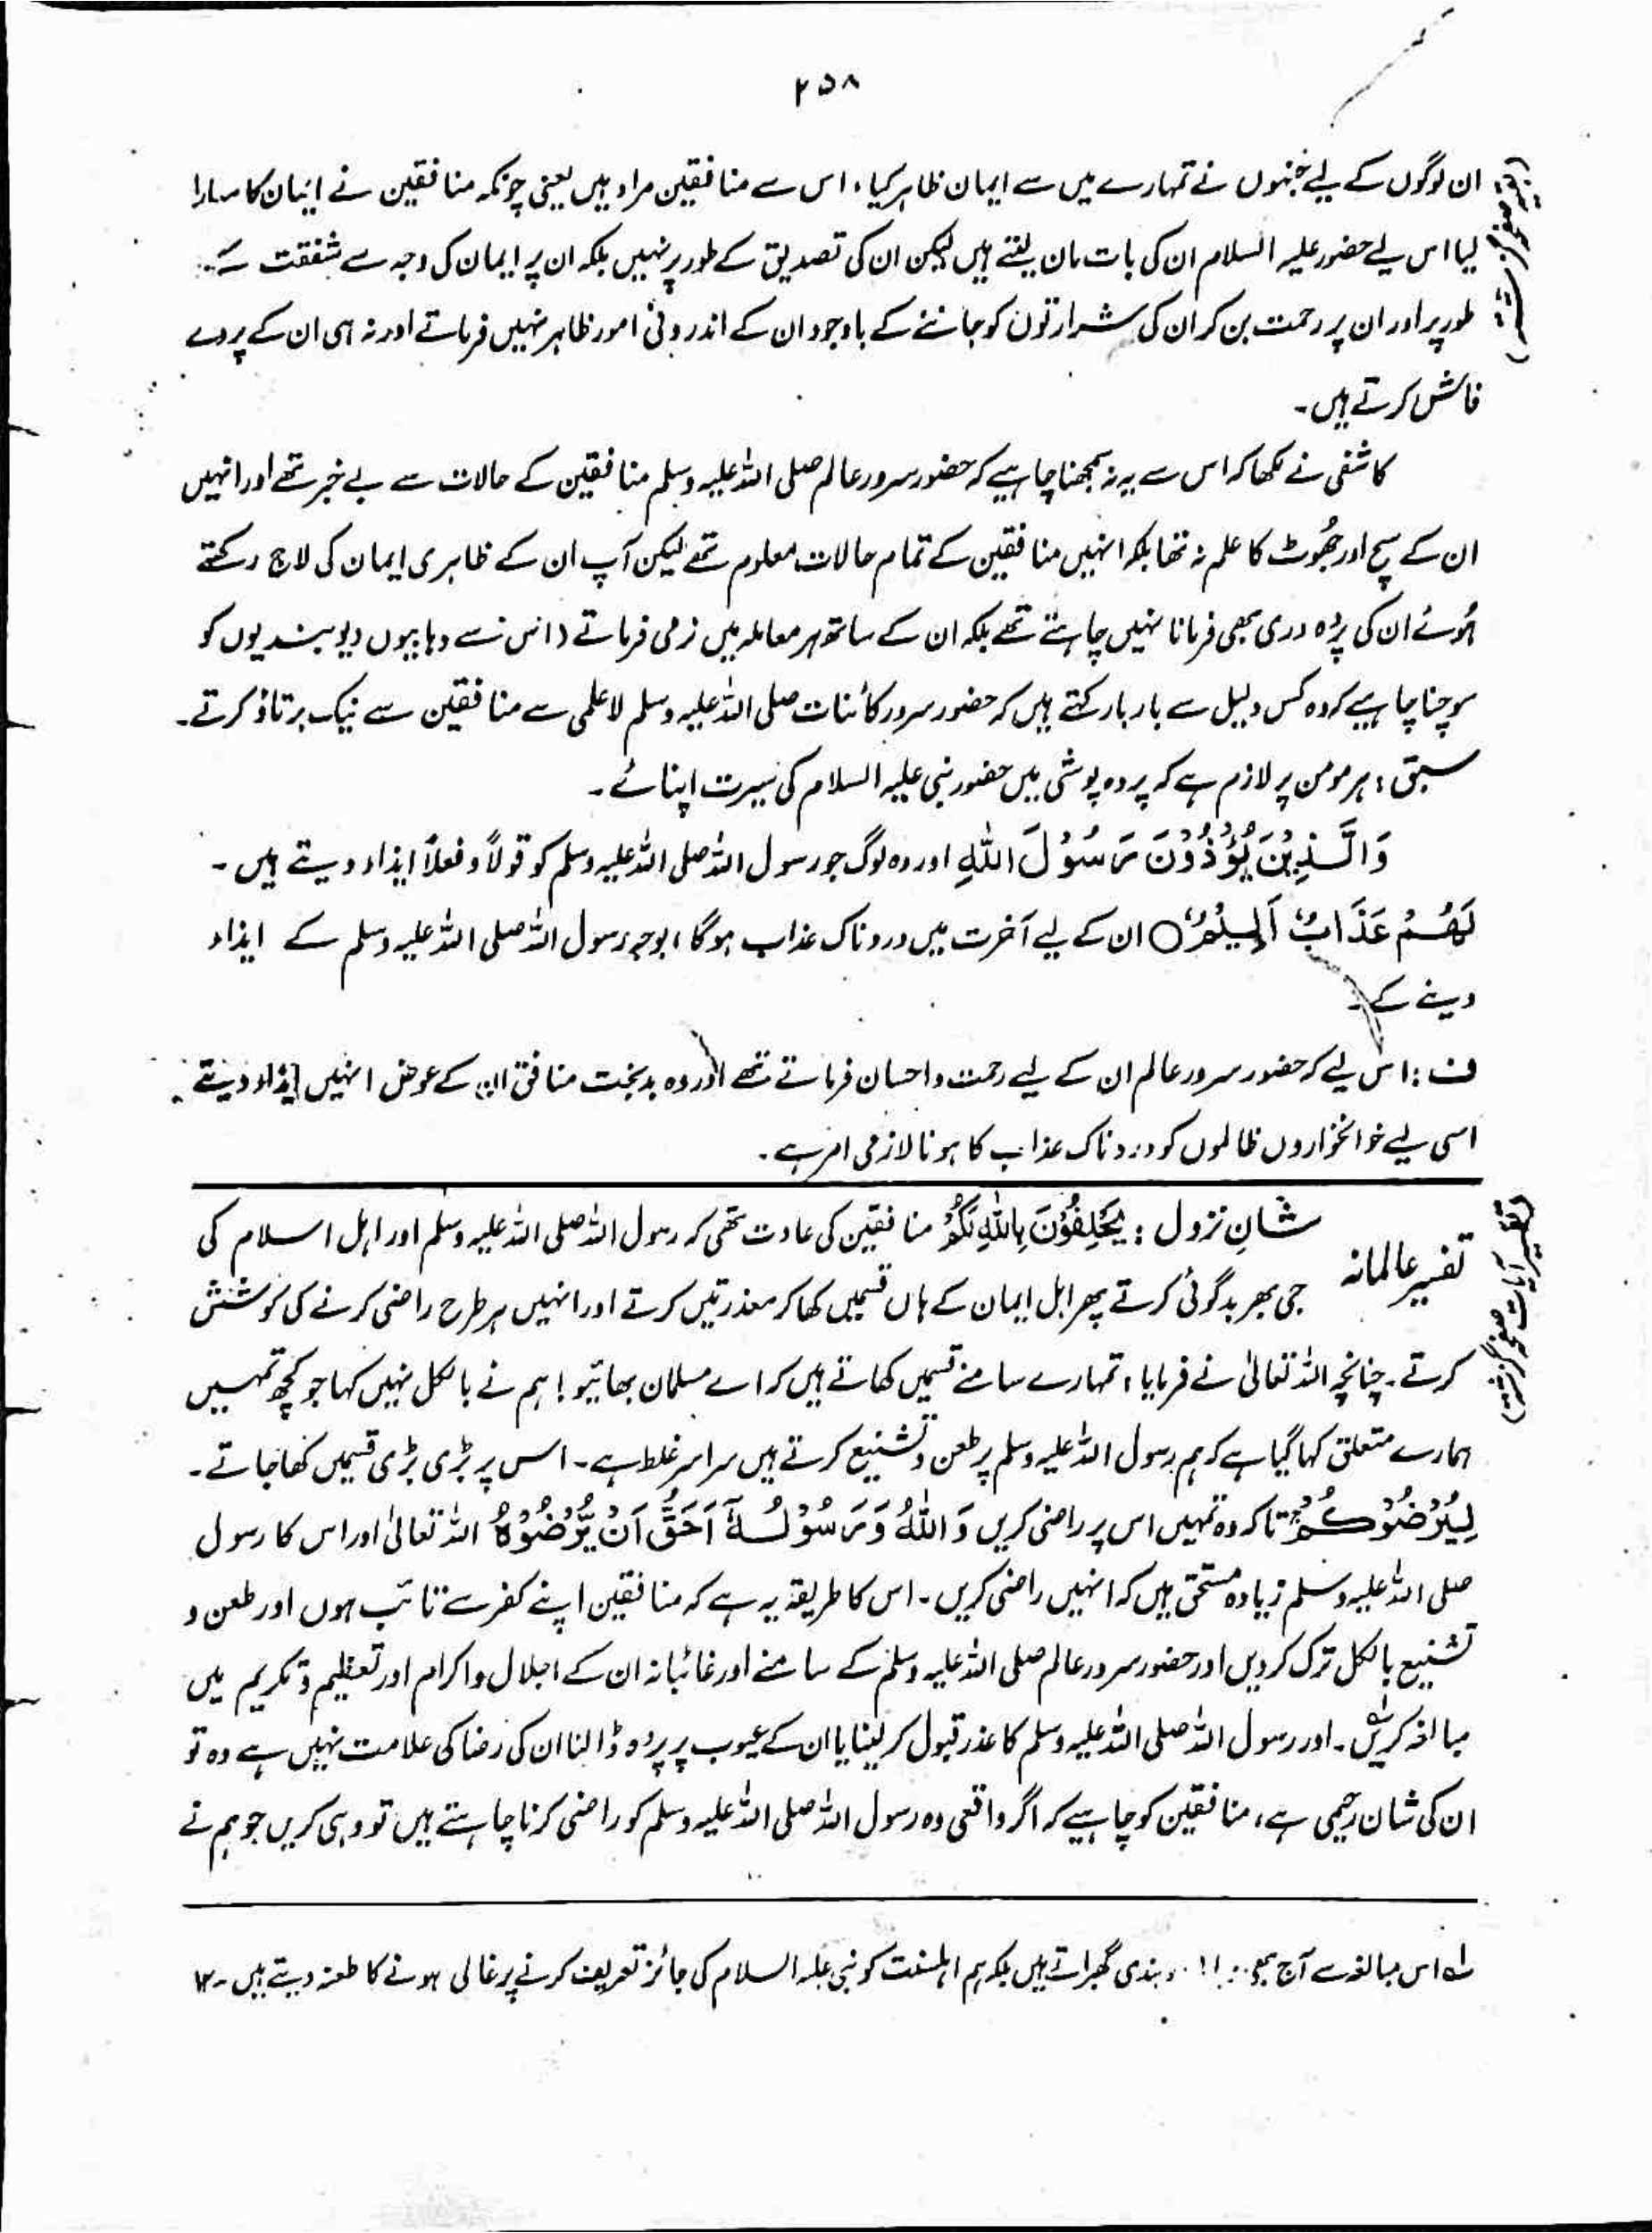 ۲۵۸
ان لوگوں کے لیے جنہوں نے تمہارے میں سے ایمان ظاہر کیا، اس سے منافقین مراد ہیں یعنی چونکہ منافقین نے ایمان کا سہارا
لیا اس لیے حضور علیہ السلام ان کی بات مان لیتے ہیں لیکن ان کی تصدیق کے طور پر نہیں بلکہ ان پر ایمان کی وجہ سے شفقت کے
طور پر اور ان پر رحمت بن کر ان کی شرارتوں کو جاننے کے باوجود ان کے اندرونی امور ظاہر نہیں فرماتے اور نہ ہی ان کے پردے
فاش کرتے ہیں۔
(بقیہ صفحہ گزشتہ)
کاشفی نے لکھا کہ اس سے یہ نہ سمجھنا چاہیے کہ حضور سرور عالم صلی اللہ علیہ وسلم منافقین کے حالات سے بے خبر تھے اور انہیں
ان کے سچ اور جھُوٹ کا علم نہ تھا بلکہ انہیں منافقین کے تمام حالات معلوم تھے لیکن آپ ان کے ظاہری ایمان کی لاج رکھتے
ہُوئے ان کی پردہ دری بھی فرمانا نہیں چاہتے تھے بلکہ ان کے ساتھ ہر معاملہ میں نرمی فرماتے (اس سے وہابیوں دیوبندیوں کو
سوچنا چاہیے کہ وہ کس دلیل سے بار بار کہتے ہیں کہ حضور سرور کائنات صلی اللہ علیہ وسلم لاعلمی سے منافقین سے نیک برتاؤ کرتے۔
سبق : ہر مومن پر لازم ہے کہ پردہ پوشی میں حضور نبی علیہ السلام کی سیرت اپنائے۔
وَالَّذِیْنَ یُؤْذُوْنَ رَسُوْلَ اللّٰہِ اور وہ لوگ جو رسول اللہ صلی اللہ علیہ وسلم کو قولاً و فعلاً ایذاء دیتے ہیں۔
لَھُمْ عَذَابٌ اَلِیْمٌ ○ ان کے لیے آخرت میں دردناک عذاب ہوگا، بوجہ رسول اللہ صلی اللہ علیہ وسلم کے ایذاء
دینے کے۔
ف : اس لیے کہ حضور سرور عالم ان کے لیے رحمت و احسان فرماتے تھے اور وہ بدبخت منافق ان کے عوض انہیں ایذاء دیتے
اسی لیے خوانخواروں ظالموں کو دردناک عذاب کا ہونا لازمی امر ہے۔
(تفسیر آیات صفحہ گزشتہ)
تفسیر عالمانہ
شانِ نزول : یَحْلِفُوْنَ بِاللّٰہِ لَکُمْ منافقین کی عادت تھی کہ رسول اللہ صلی اللہ علیہ وسلم اور اہل اسلام کی
جی بھر بدگوئی کرتے پھر اہل ایمان کے ہاں قسمیں کھا کر معذرتیں کرتے اور انہیں ہر طرح راضی کرنے کی کوشش
کرتے۔ چنانچہ اللہ تعالیٰ نے فرمایا، تمہارے سامنے قسمیں کھاتے ہیں کہ اے مسلمان بھائیو! ہم نے بالکل نہیں کہا جو کچھ تمہیں
ہمارے متعلق کہا گیا ہے کہ ہم رسول اللہ علیہ وسلم پر طعن و تشنیع کرتے ہیں سراسر غلط ہے۔ اس پر بڑی بڑی قسمیں کھا جاتے۔
لِیُرْضُوْکُمْ تاکہ وہ تمہیں اس پر راضی کریں وَاللّٰہُ وَرَسُوْلُہٗٓ اَحَقُّ اَنْ یُّرْضُوْہُ اللہ تعالیٰ اور اس کا رسول
صلی اللہ علیہ وسلم زیادہ مستحق ہیں کہ انہیں راضی کریں۔ اس کا طریقہ یہ ہے کہ منافقین اپنے کفر سے تائب ہوں اور طعن و
تشنیع بالکل ترک کر دیں اور حضور سرور عالم صلی اللہ علیہ وسلم کے سامنے اور غائبانہ ان کے اجلال و اکرام اور تعظیم و تکریم میں
مبالغہ کریں۔ اور رسول اللہ صلی اللہ علیہ وسلم کا عذر قبول کر لینا یا ان کے عیوب پر پردہ ڈالنا ان کی رضا کی علامت نہیں ہے وہ تو
ان کی شان رحیمی ہے، منافقین کو چاہیے کہ اگر واقعی وہ رسول اللہ صلی اللہ علیہ وسلم کو راضی کرنا چاہتے ہیں تو وہی کریں جو ہم نے
لہ اس مبالغہ سے آج بھی بندی گھبراتے ہیں بلکہ ہم اہلسنت کو نبی علیہ السلام کی جائز تعریف کرنے پر غالی ہونے کا طعنہ دیتے ہیں۔۱۲